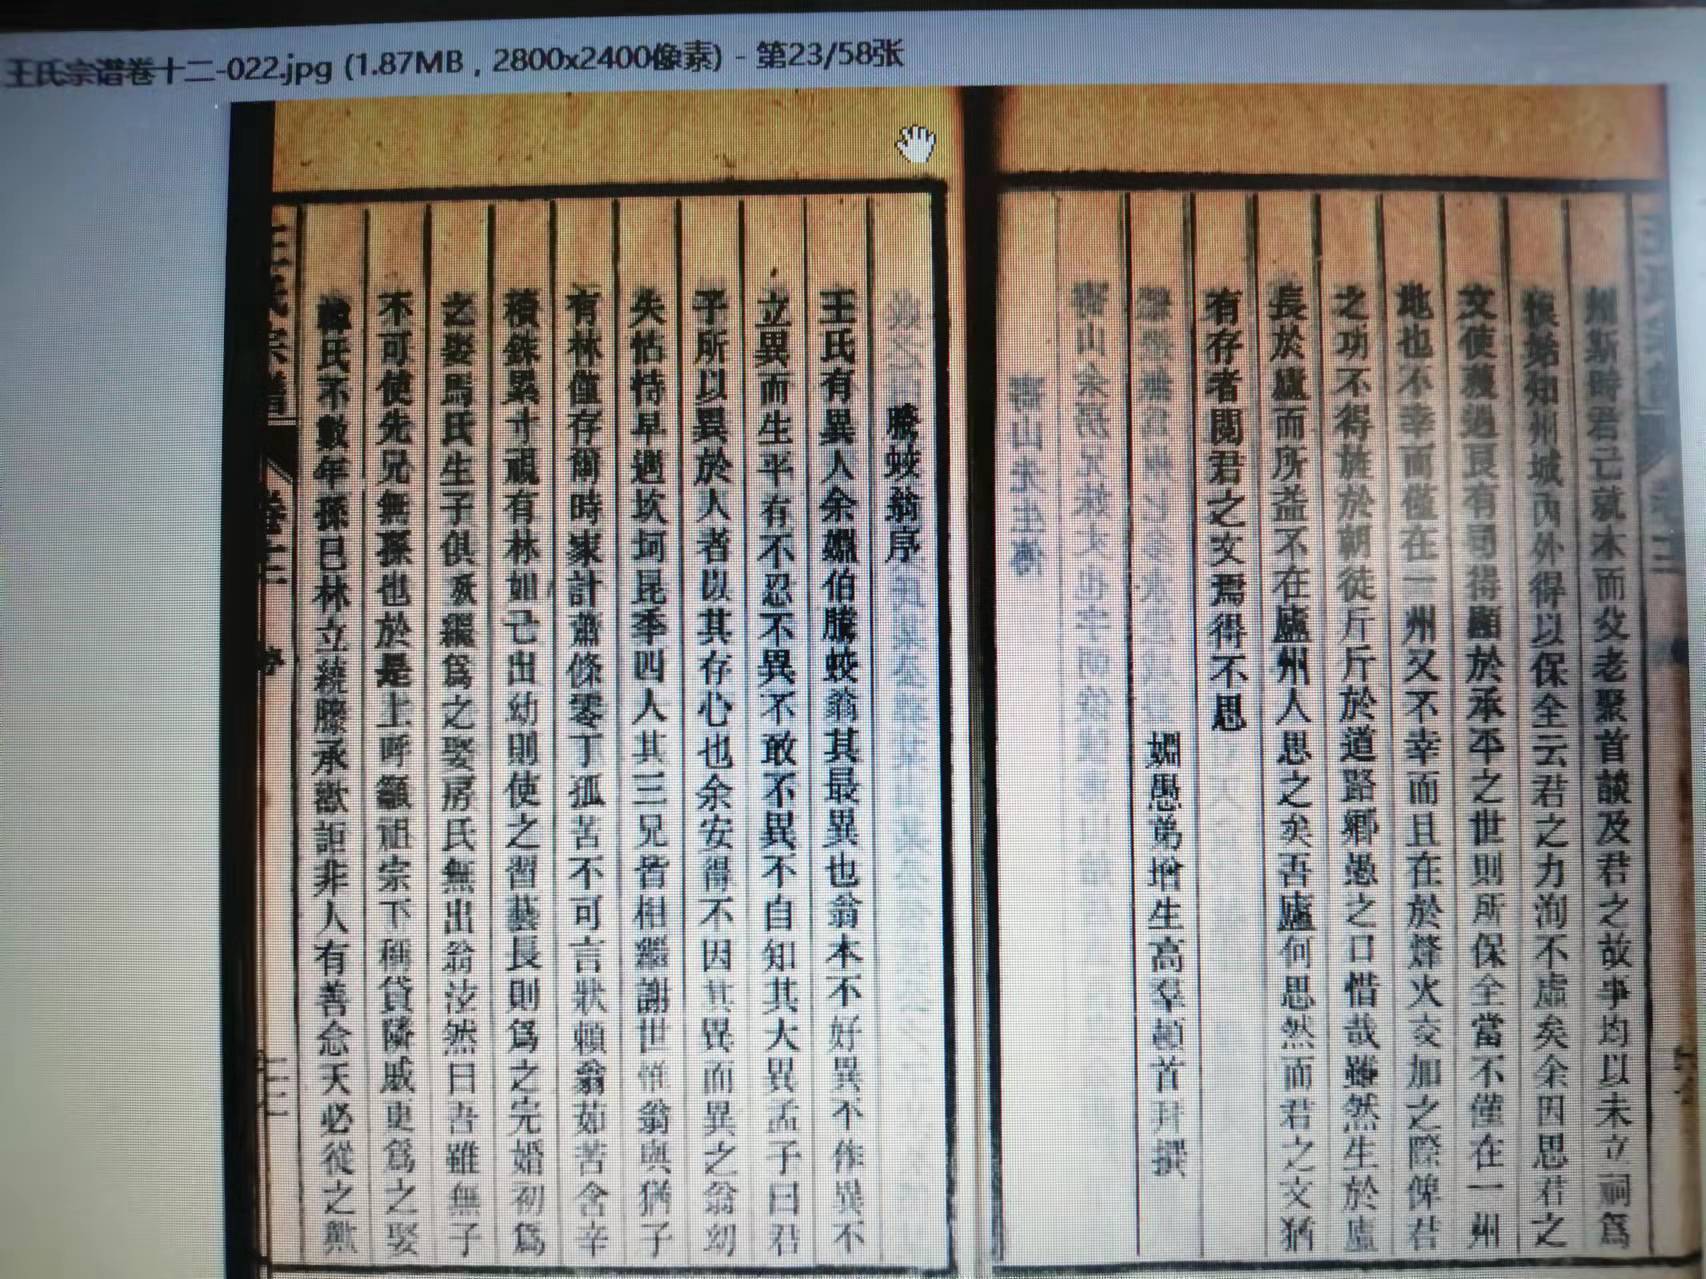 王氏宗谱卷十二-022.jpg (1.87MB，2800x2400像素) - 第23/58张
州斯時君已就木而父老聚首談及君之故事均以未立祠為
恨始知州城內外得以保全云君之力洵不虛矣余因思君之
文使獲過良有司得顯於承平之世則所保全當不僅在一州
地也不幸而僅在一州又不幸而且在於烽火交加之際俾君
之功不得旌於朝徒斤斤於道路鄉愚之口惜哉雖然生於廬
長於廬而所益不在廬州人思之矣吾廬何思然而君之文猶
有存者閱君之文焉得不思
姻愚弟增生高羣頓首拜撰
騰蛟翁序
王氏有異人余姻伯騰蛟翁其最異也翁本不好異不作異不
立異而生平有不忍不異不敢不異不自知其大異孟子曰君
子所以異於人者以其存心也余安得不因其異而異之翁幼
失怙恃早遇坎坷昆季四人其三兄皆相繼謝世惟翁與猶子
有林僅存爾時家計蕭條零丁孤苦不可言狀賴翁茹苦含辛
積銖累寸視有林如己出幼則使之習藝長則為之完婚初為
之娶馬氏生子俱殀繼為之娶房氏無出翁泫然曰吾雖無子
不可使先兄無孫也於是上呼籲祖宗下稱貸隣戚更為之娶
韓氏不數年孫巳林立繞膝承歡詎非人有善念天必從之歟
王氏宗譜
卷十二